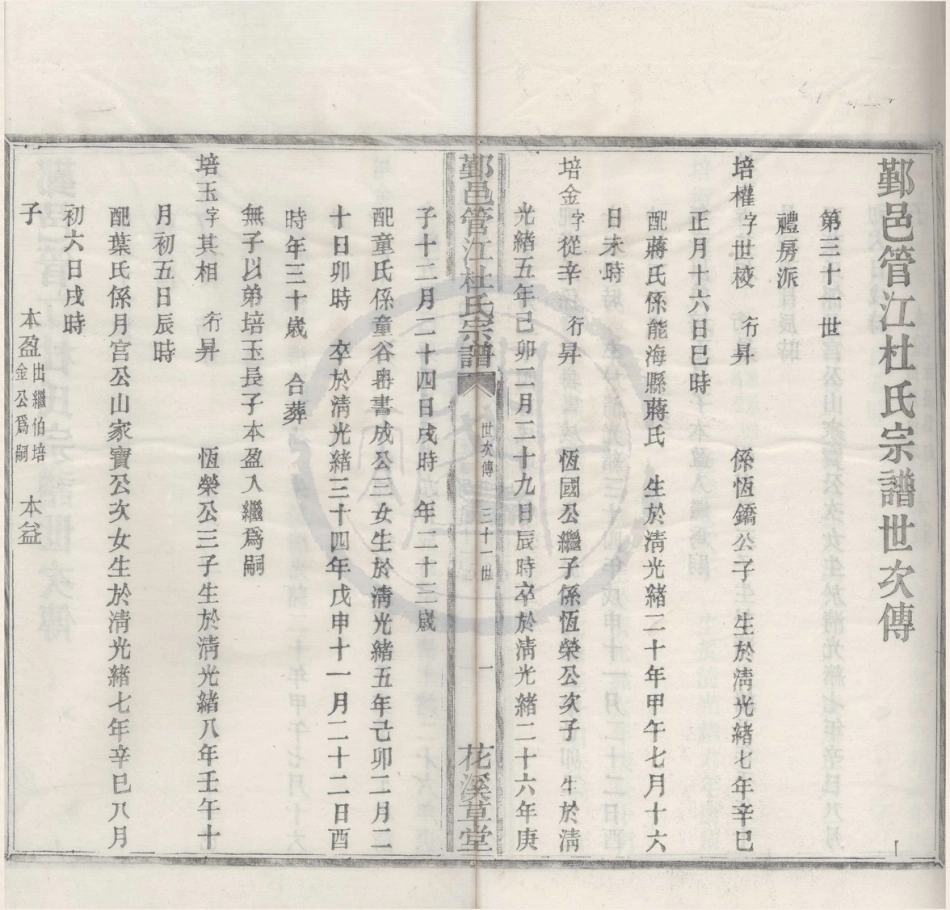 鄞邑管江杜氏宗譜世次傳
第三十一世
禮房派
培權字世稜　行昇　係恆鐈公子生於淸光緒七年辛巳
正月十六日巳時
配蔣氏係能海縣蔣氏　生於淸光緒二十年甲午七月十六
日未時
培金字從辛　行昇　恆國公繼子係恆榮公次子　生於淸
光緒五年己卯二月二十九日辰時卒於淸光緒二十六年庚
鄞邑管江杜氏宗譜　世次傳　三十一世　一　花溪草堂
子十二月二十四日戌時　年二十三歲
配童氏係童谷嶴書成公三女生於淸光緒五年己卯二月二
十日卯時　卒於淸光緒三十四年戊申十一月二十二日酉
時年三十歲　合葬
無子以弟培玉長子本盈入繼爲嗣
培玉字其相　行昇　恆榮公三子生於淸光緒八年壬午十
月初五日辰時
配葉氏係月宮公山家寶公次女生於淸光緒七年辛巳八月
初六日戌時
子　本盈出繼怕培金公爲嗣　本益